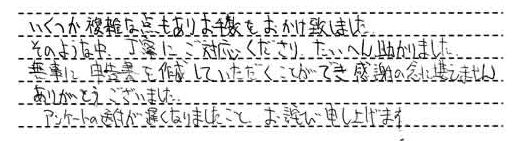 いくつか複雑な点もありお手数をおかけ致しました
そのような中、丁寧にご対応くださり、たいへん助かりました。
無事に、申告書を作成していただくことができ感謝の念に堪えません
ありがとうございました。
アンケートの送付が遅くなりましたこと、お詫び申し上げます。